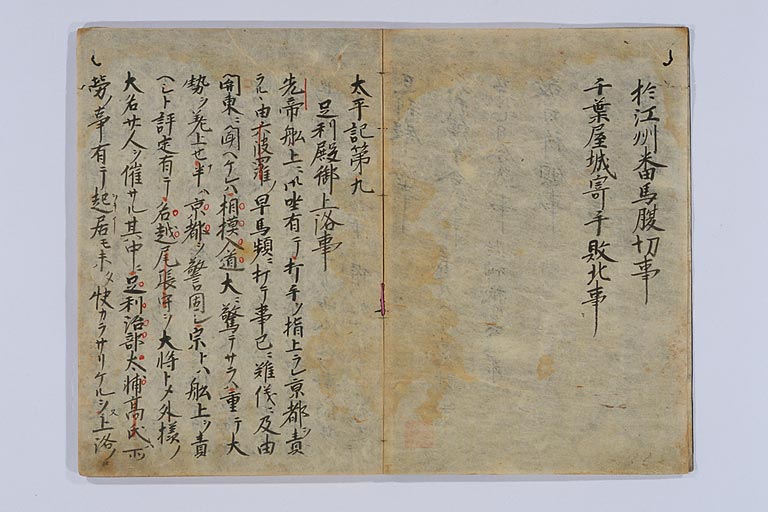 於江州番馬腹切事
千葉屋城寄手敗北事
太平記第九
足利殿御上洛事
先帝船上ニ御坐有テ打手ヲ指上ラレ京都ヲ責
ラルヽ由六波羅ノ早馬頻ニ打テ事已ニ難儀ニ及由
関東ニ聞ヘケレハ相摸入道大ニ驚テサラハ重テ大
勢ヲ差上セ半ハ京都ヲ警固シ宗トハ船上ヲ責
ヘシト評定有テ名越尾張守ヲ大将トメ外様ノ
大名廿人ヲ催サル其中ニ足利治部太輔高氏ハ所
労ノ事有テ起居モ未タ快カラサリケルヲ上洛ノ